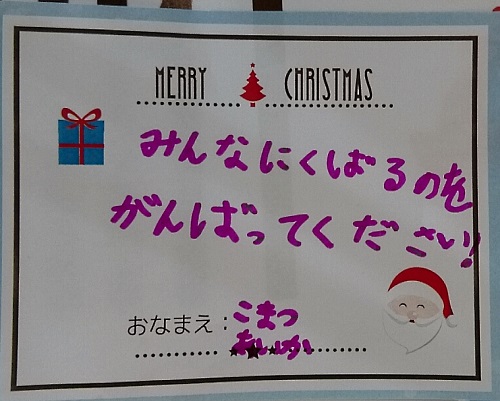 MERRY CHRISTMAS
みんなにくばるのを
がんばってください!!
おなまえ：こまつ
あいか